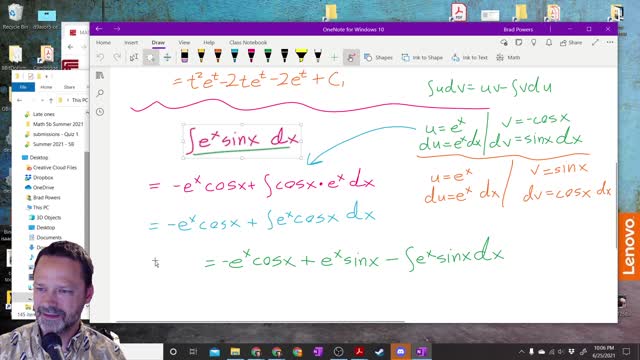 OneNote for Windows 10
Brad Powers
Home
Insert
Draw
View
Help
Share
= t²eᵗ-2teᵗ-2eᵗ+C₁
∫udv = uv-∫vdu
∫eˣsinx dx
u=eˣ
v=-cosx
du=eˣdx
dv=sinx dx
= -eˣcosx+∫cosx•eˣdx
u=eˣ
v=sinx
du=eˣdx
dv=cosx dx
=-eˣcosx+∫eˣcosx dx
=-eˣcosx+eˣsinx-∫eˣsinxdx
Recycle Bin
This PC
Late ones
Math 5b Summer 2021
submissions - Quiz 1
Summer 2021 - 5B
Desktop
Creative Cloud Files
Dropbox
OneDrive
This PC
3D Objects
Desktop
Documents
Downloads
Lenovo
10:06 PM
6/25/2021